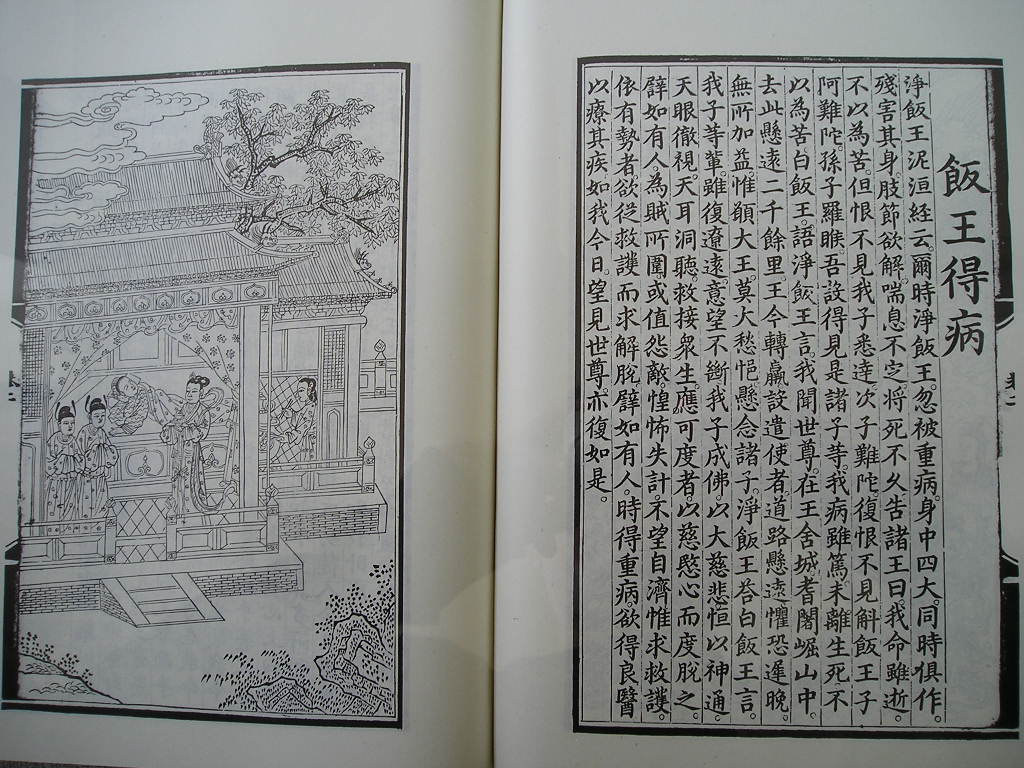 飯王得病
淨飯王泥洹經云。爾時淨飯王。忽被重病。身中四大。同時俱作。
殘害其身。肢節欲解。喘息不定。將死不久。告諸王曰。我命雖逝。
不以為苦。但恨不見我子悉達。次子難陀。復恨不見斛飯王子
阿難陀。孫子羅睺。吾設得見是諸子等。我病雖篤。未離生死。不
以為苦。白飯王。語淨飯王言。我聞世尊。在王舍城耆闍崛山中。
去此懸遠二千餘里。王今轉羸。設遣使者。道路懸遠。懼恐遲晚。
無所加益。惟願大王。莫大愁悒。懸念諸子。淨飯王荅白飯王言。
我子等輩。雖復遼遠。意望不斷。我子成佛。以大慈悲。恒以神通。
天眼徹視。天耳洞聽。救接眾生。應可度者。以慈愍心而度脫之。
譬如有人。為賊所圍。或值怨敵。惶怖失計。不望自濟。惟求救護。
依有勢者。欲從救護而求解脫。譬如有人。時得重病。欲得良醫
以療其疾。如我今日。望見世尊。亦復如是。